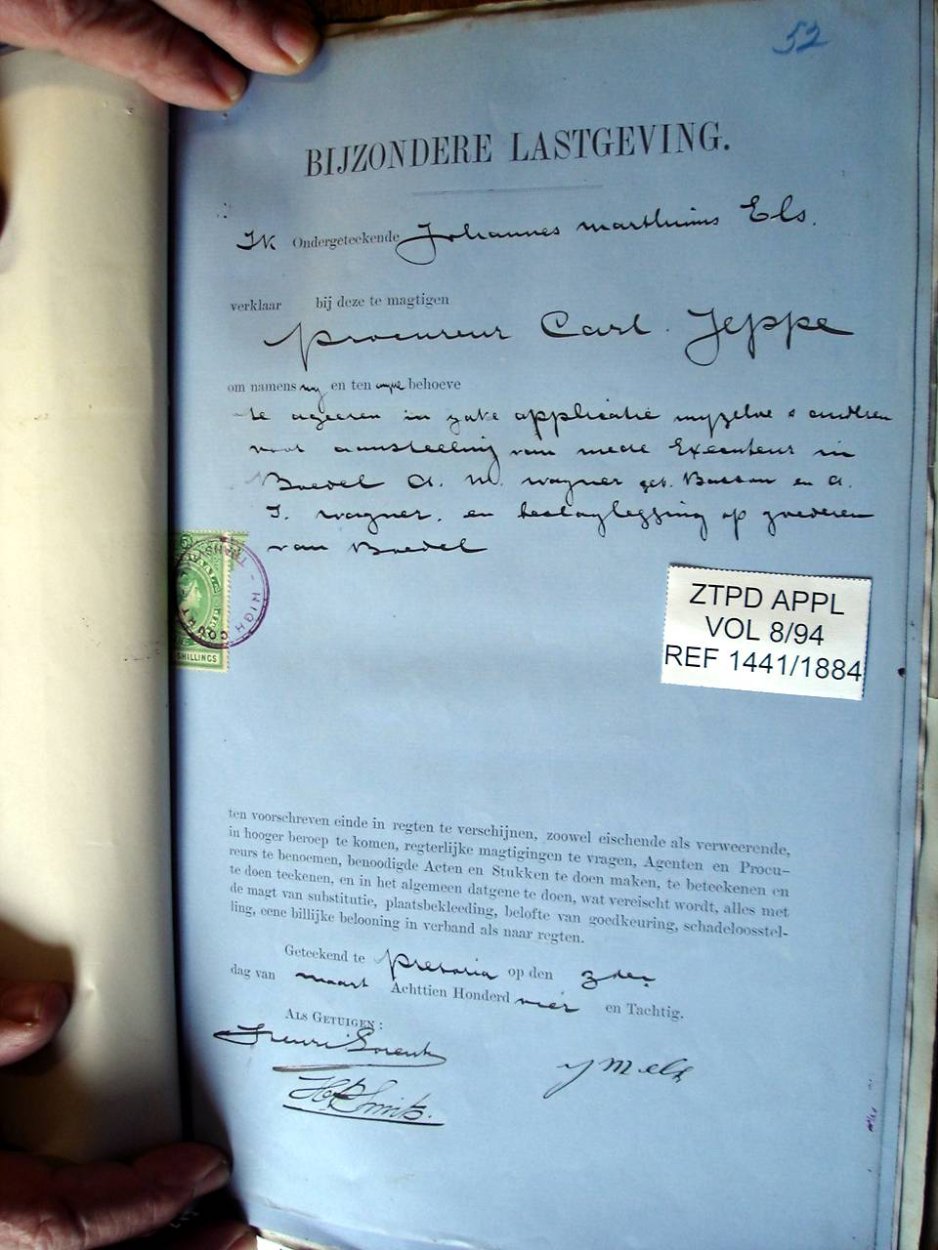 52
BIJZONDERE LASTGEVING.
Ik Ondergeteekende Johannes Marthinus Els.
verklaar bij deze te magtigen
Procureur Carl Jeppe
om namens my en ten myne behoeve
te ageeren in zake applicatie myzelve & anderen
voor aanstelling van mede Executeur in
Boedel A. M. Wagner geb. Basson en A.
J. Wagner. en beslaglegging op goederen
van Boedel
HIGH COURT
SHILLINGS
ZTPD APPL
VOL 8/94
REF 1441/1884
ten voorschreven einde in regten te verschijnen, zoowel eischende als verweerende,
in hooger beroep te komen, regterlijke magtigingen te vragen, Agenten en Procu-
reurs te benoemen, benoodigde Acten en Stukken te doen maken, te beteekenen en
te doen teekenen, en in het algemeen datgene te doen, wat vereischt wordt, alles met
de magt van substitutie, plaatsbekleeding, belofte van goedkeuring, schadeloosstel-
ling, eene billijke belooning in verband als naar regten.
Geteekend te Pretoria op den 3den
dag van Maart Achttien Honderd vier en Tachtig.
ALS GETUIGEN:
Henri
J M Els
Smits